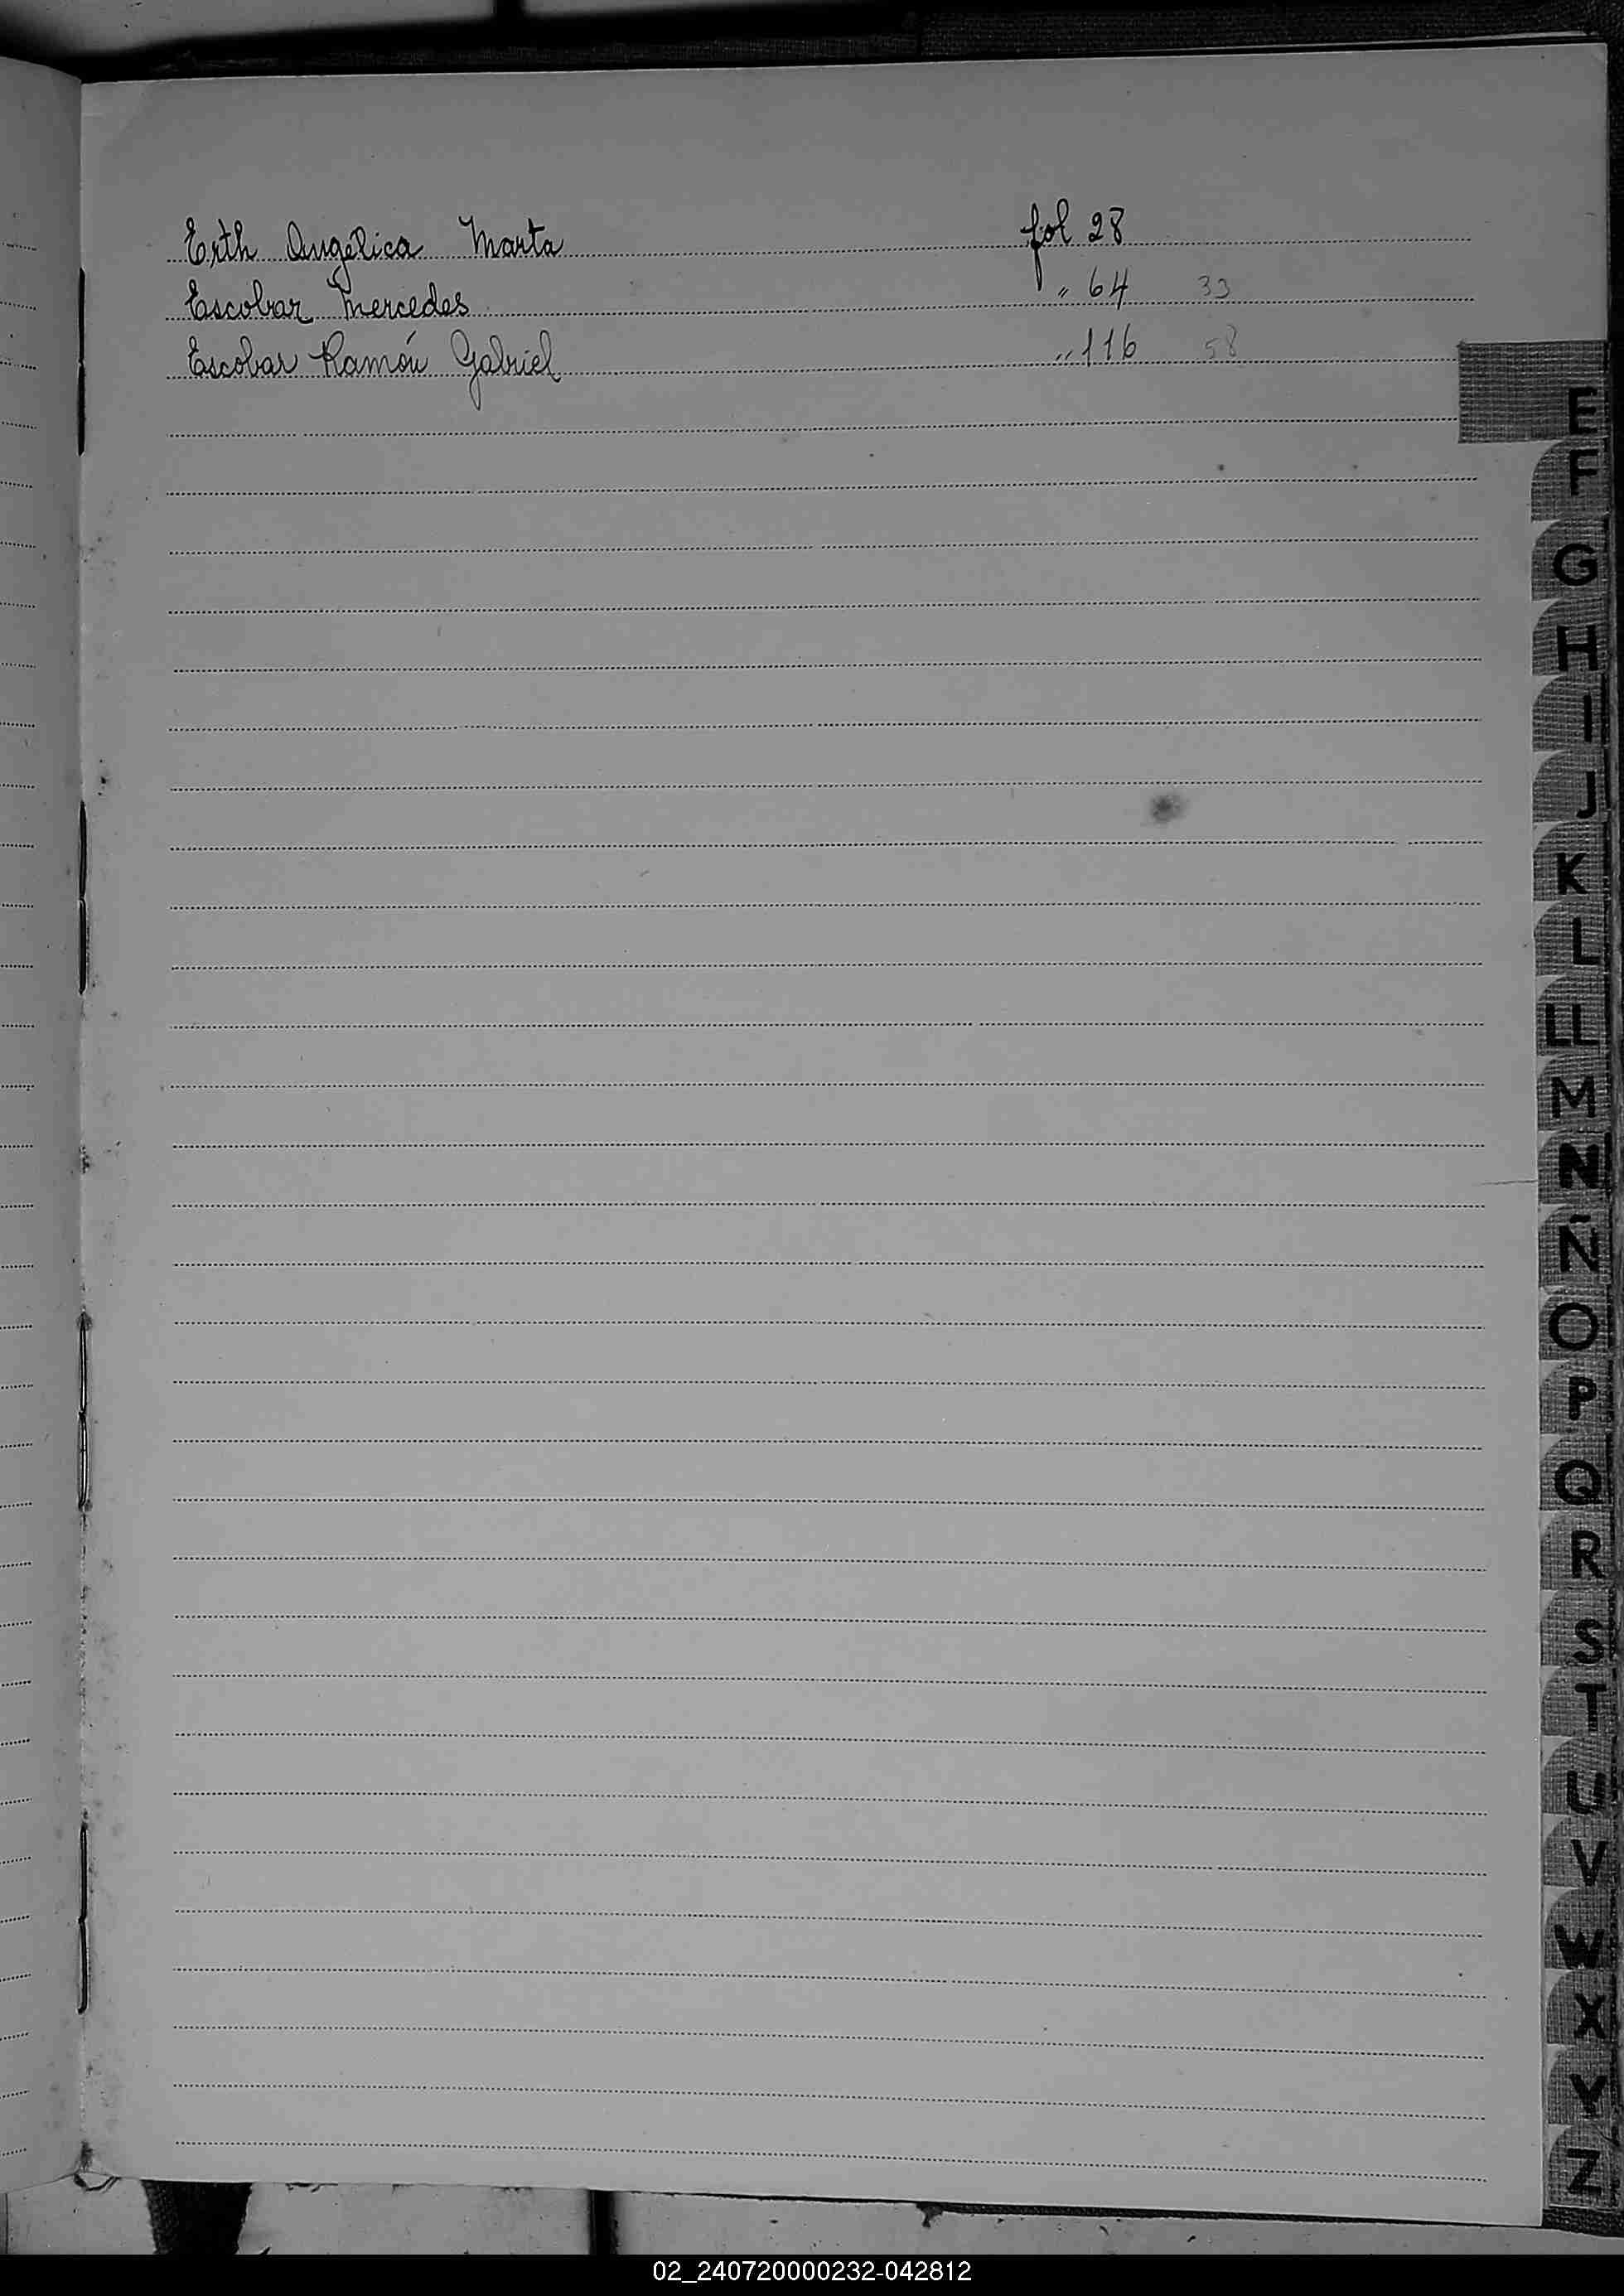 Erth Angélica Marta fol 28
Escobar Mercedes " 64 33
Escobar Ramón Gabriel " 116 58
E
F
G
H
I
J
K
L
LL
M
N
Ñ
O
P
Q
R
S
T
U
V
W
X
Y
Z
02_240720000232-042812